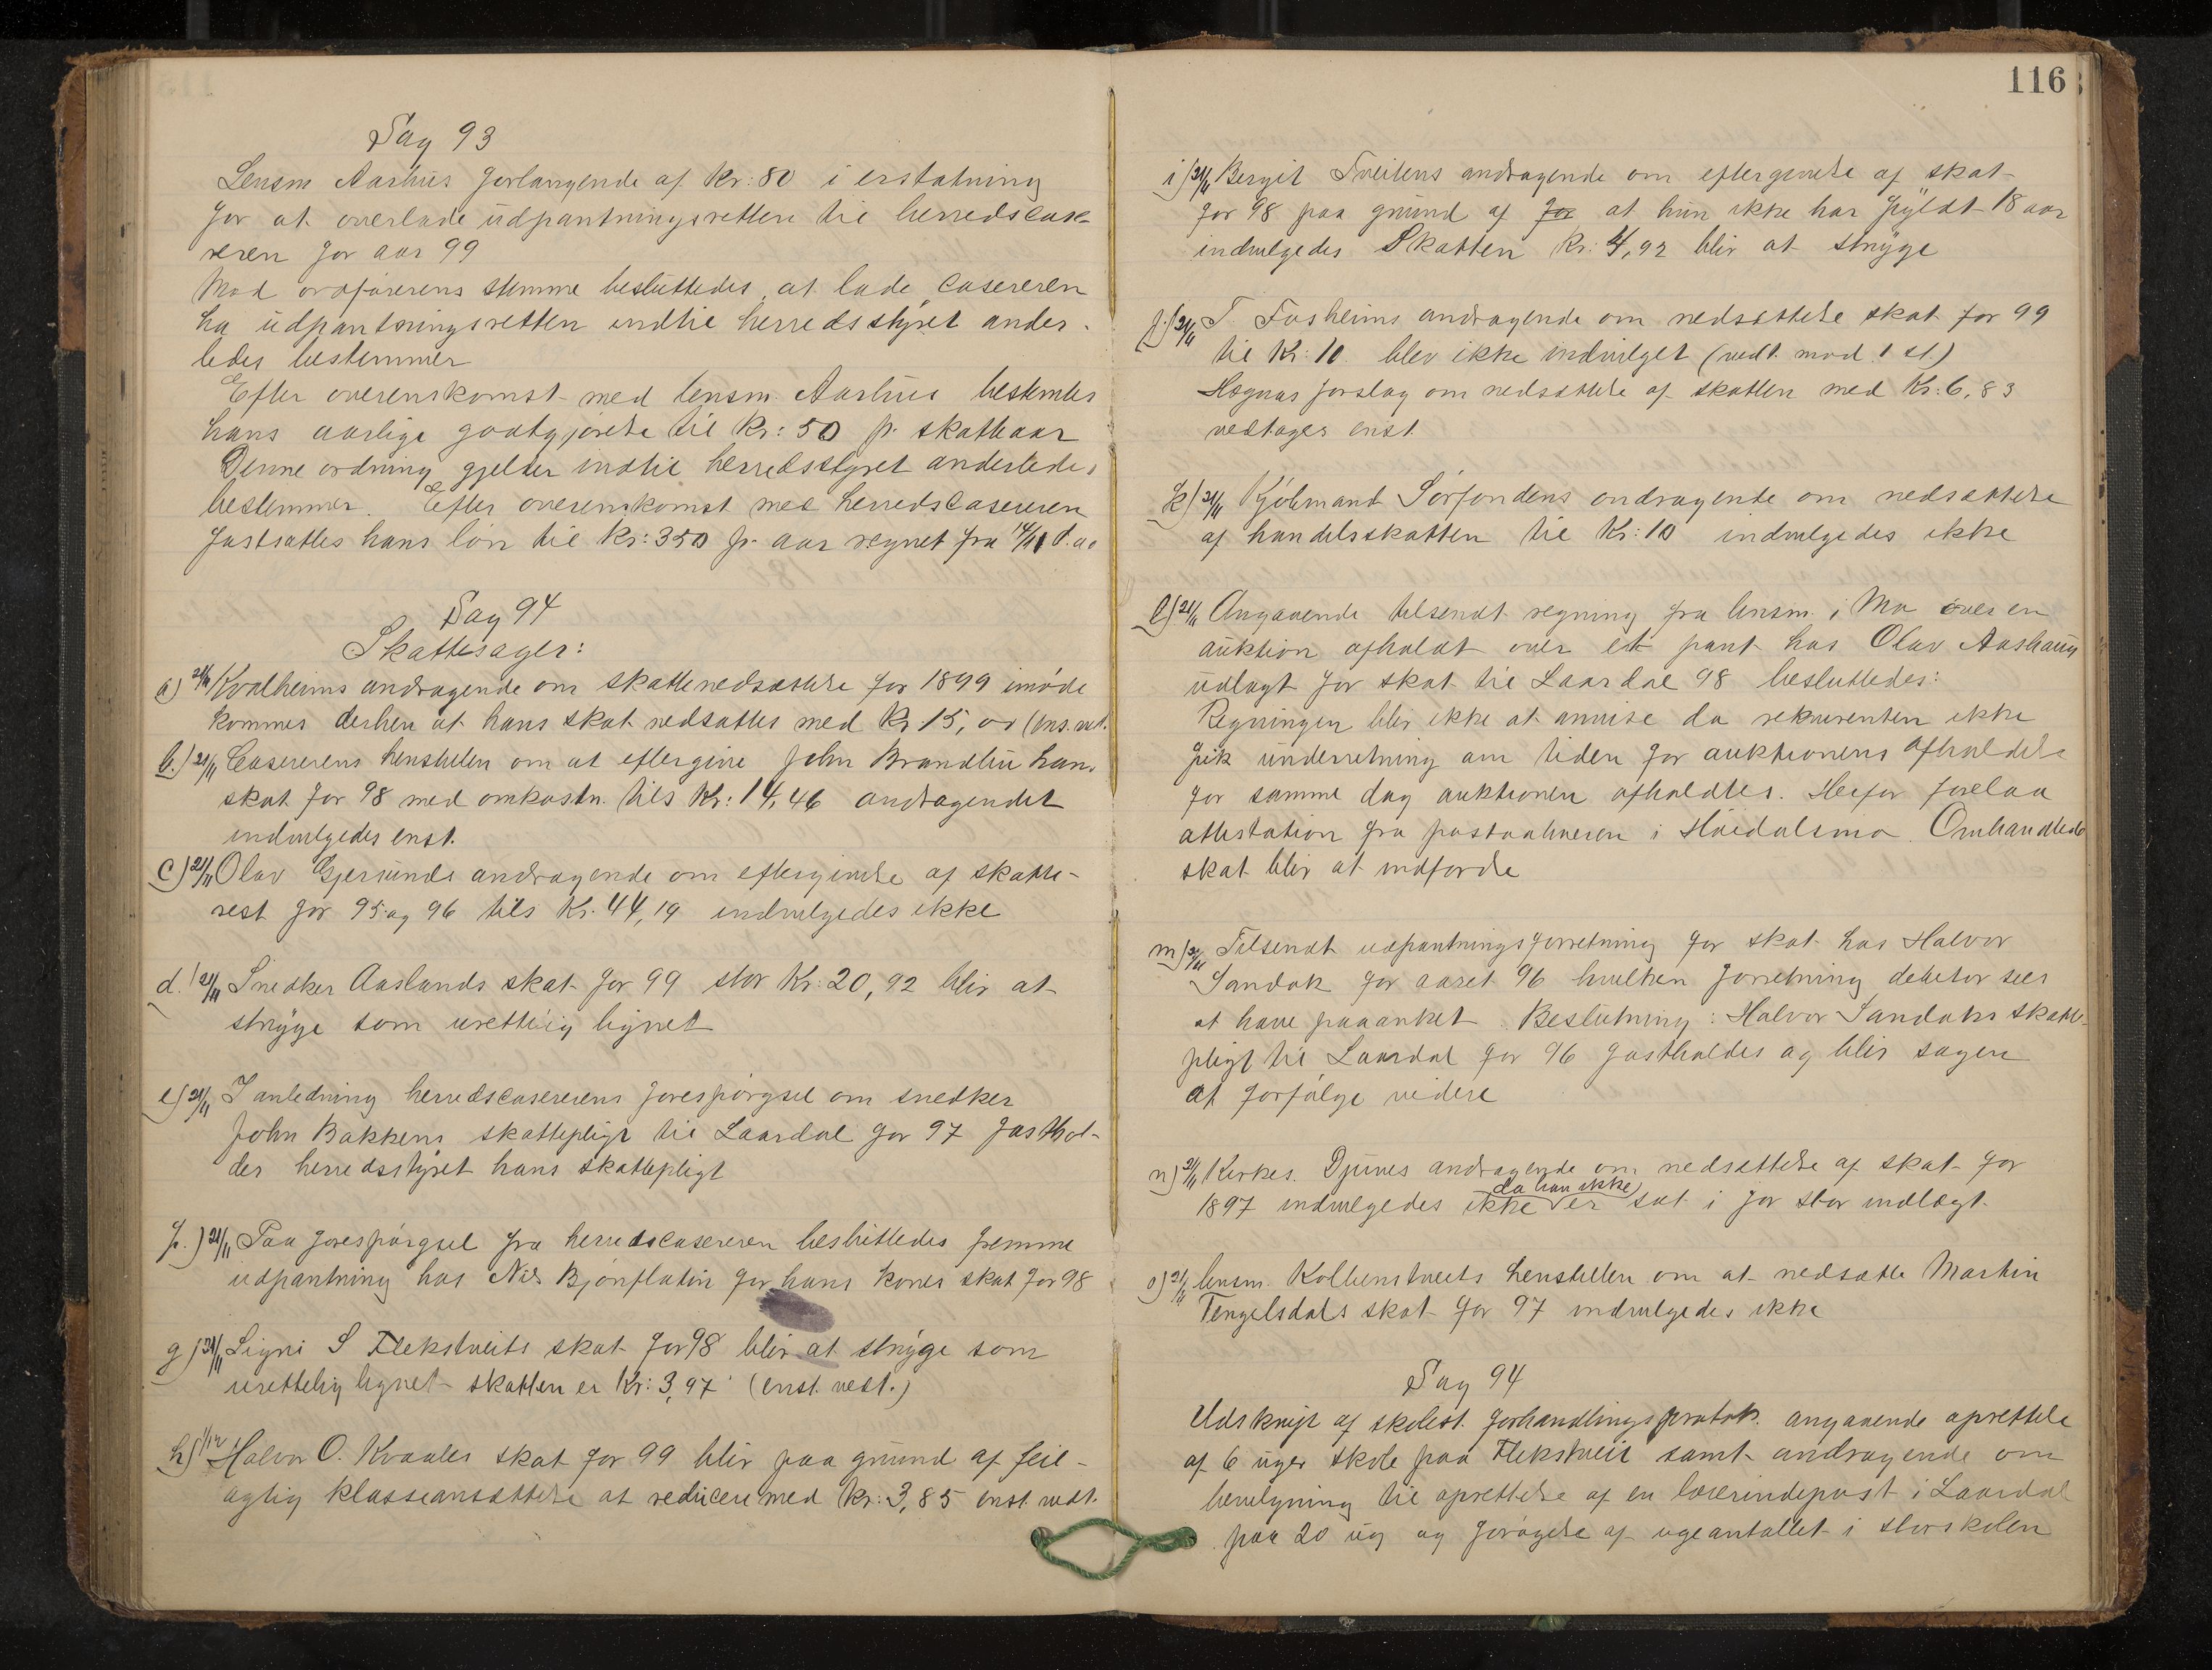 Sag 93
Lensm Aarhus forlangende af Kr: 80 i erstatning
for at overlade udpantningsretten til herredscas-
reren for aar 99
Mod ordførerens stemme besluttedes at lade casereren
ha udpantningsretten indtil herredsstyret ander-
ledes bestemmer
Efter overenskomst med lensm. Aarhus bestemtes
hans aarlige godtgjørelse til Kr: 50 pr. skatteaar
Denne ordning gjelder indtil herredsstyret anderledes
bestemmer. Efter overenskomst med herredscasereren
fastsattes hans løn til Kr: 350 pr. aar regnet fra 14/11 d.a.
Sag 94
Skattesager:
a) 21/11 Kvalheims andragende om skattenedsættelse for 1899 imøde
kommes derhen at hans skat nedsattes med Kr 15,00 (ens. vet.
b.) 21/11 Casererens henstillen om at eftergive John Brandliu hans
skat for 98 med omkostn. tils Kr: 14,46 andragendet
indvilgedes enst.
c) 21/11 Olav Gjersunds andragende om eftergivelse af skatte-
rest for 95 og 96 tils Kr. 44,19 indvilgedes ikke
d.) 21/11 Snedker Aaslands skat for 99 stor Kr: 20,92 blir at
stryge som urettelig lignet
e) 21/11 I anledning herredscasererens forespørgsel om snedker
John Bakkens skattepligt til Laardal for 97 fasthol-
der herredsstyret hans skattepligt
f.) 21/11 Paa forespørgsel fra herredscasereren besluttedes fremme
udpantning hos Nils Bjønflatin for hans kones skat for 98
g) 21/11 Signi S Flekstveits skat for 98 blir at stryge som
urettelig lignet - skatten er Kr: 3,97 (enst. vedt.)
h) 1/12 Halvor O. Kvaales skat for 99 blir paa grund af feil-
agtig klasseansættelse at reducere med Kr: 3,85 enst. vedt.
116
i) 21/11 Bergit Tveitens andragende om eftergivelse af skat
for 98 paa grund af for at hun ikke har fyldt 18 aar
indvilgedes Skatten Kr: 4,92 blir at stryge
j.) 21/11 T Fosheims andragende om nedsættelse skat for 99
til Kr: 10 blev ikke indvilget (vedt. mod 1 st.)
Høgnas forslag om nedsættelse af skatten med Kr: 6,83
vedtages enst.
k) 21/11 Kjøbmand Sørfondens andragende om nedsættelse
af handelsskatten til Kr: 10 indvilgedes ikke
l) 21/11 Angaaende tilsendt regning fra lensm. i Mo over en
auktion afholdt over et pant hos Olav Aashaug
udlagt for skat til Laardal 98 besluttedes:
Regningen blir ikke at anvise da rekvirenten ikke
fik underretning om tiden for auktionens afholdelse
før samme dag auktionen afholdtes. Herfor forelaa
attestation fra postaabneren i Høidalsmo. Omhandlede
skat blir at indfordre
m) 21/11 Tilsendt udpantningsforretning for skat hos Halvor
Sandok for aaret 96 hvilken forretning debitor sees
at have paaanket. Beslutning: Halvor Sandoks skatte-
pligt til Laardal for 96 fastholdes og blir sagen
at forfølge videre
n) 21/11 Kirkes. Djuves andragende om nedsættelse af skat for
1897 indvilgedes ikke da han ikke er sat i for stor indtægt.
o) 21/11 lensm. Kolbenstveits henstillen om at nedsætte Martin
Tengelsdals skat for 97 indvilgedes ikke
Sag 94
Udskrift af skolest. forhandlingsprotok. angaaende oprettelse
af 6 uger skole paa Flekstveit samt andragende om
bevilgning til oprettelse af en lærerindepost i Laardal
paa 20 ug og forøgelse af ugeantallet i storskolen